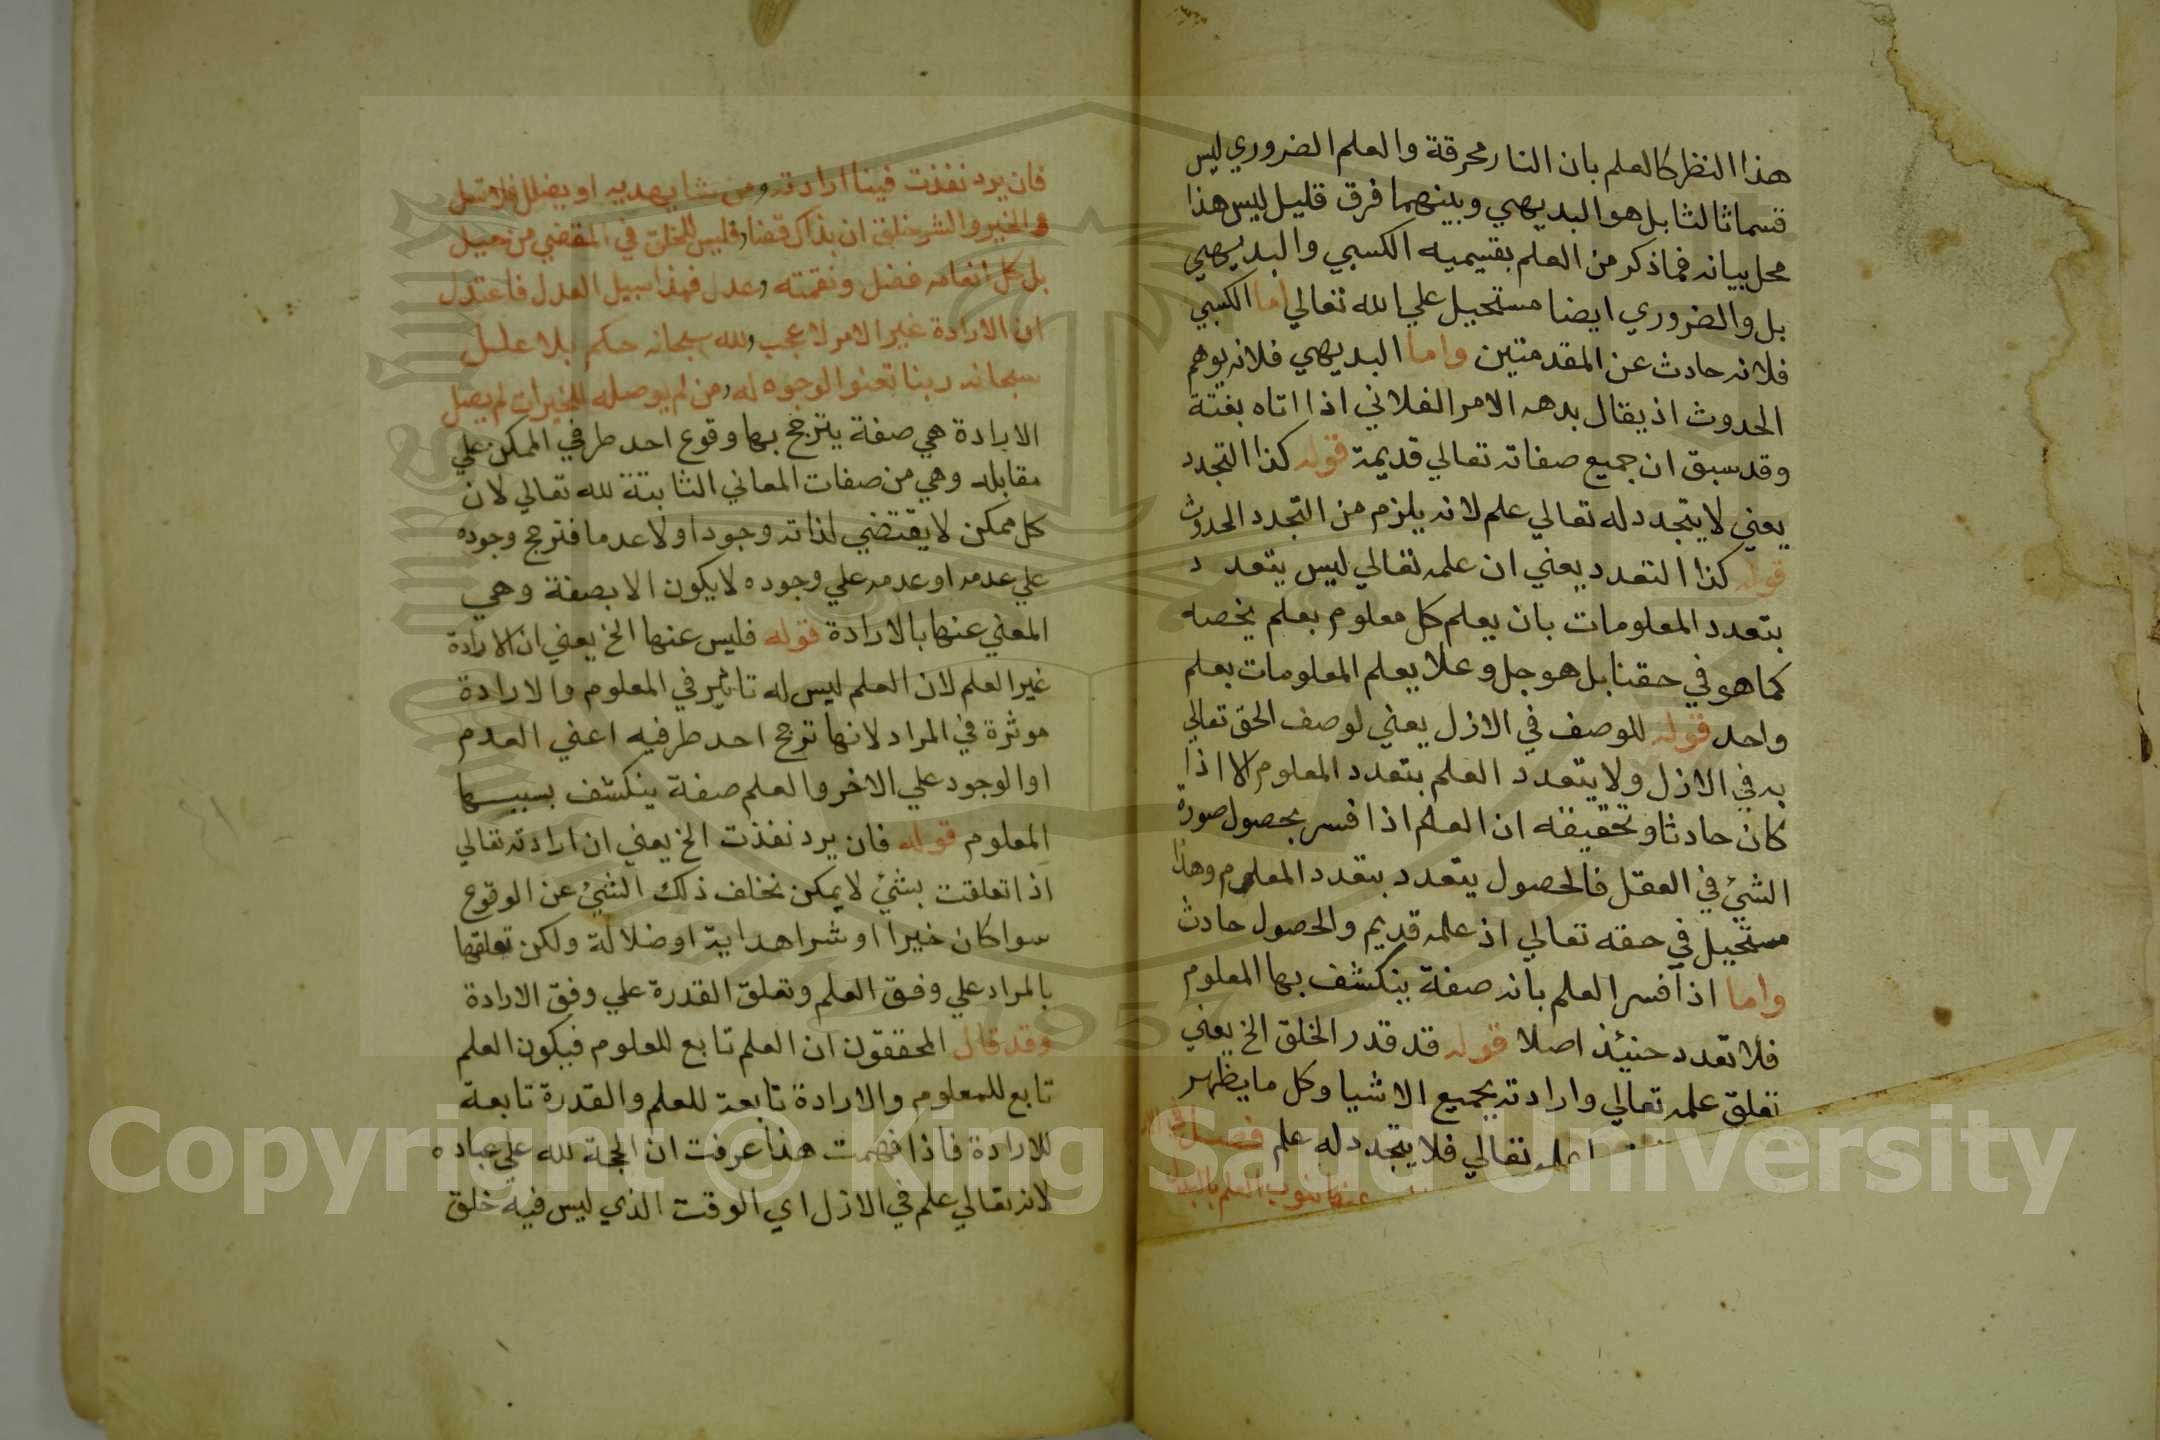 هذا النظر كالعلم بان النار محرقة والعلم الضروري ليس
قسما ثالثا بل هو البديهي وبينهما فرق قليل ليس هذا
محل بيانه فما ذكر من العلم بقسيميه الكسبي والبديهي
بل والضروري ايضا مستحيل علي الله تعالي اما الكسبي
فلانه حادث عن المقدمتين واما البديهي فلانه يوهم
الحدوث اذ يقال بدهه الامر الفلاني اذا اتاه بغتة
وقد سبق ان جميع صفاته تعالي قديمة قوله كذا التجدد
يعني لا يتجدد له تعالي علم لانه يلزم من التجدد الحدوث
قوله كذا التعدد يعني ان علمه تعالي ليس يتعدد
بتعدد المعلومات بان يعلم كل معلوم بعلم يخصه
كما هو في حقنا بل هو جل وعلا يعلم المعلومات بعلم
واحد قوله للوصف في الازل يعني لوصف الحق تعالي
به في الازل ولا يتعدد العلم بتعدد المعلوم الا اذا
كان حادثا وتحقيقه ان العلم اذا فسر بحصول صورة
الشئ في العقل فالحصول يتعدد بتعدد المعلوم وهذا
مستحيل في حقه تعالي اذ علمه قديم والحصول حادث
واما اذا فسر العلم بانه صفة ينكشف بها المعلوم
فلا تعدد حينئذ اصلا قوله قد قدر الخلق الخ يعني
تعلق علمه تعالي وارادته بجميع الاشيا وكل ما يظهر
علمه تعالي فلا يتجدد له علم فصل
عنها ينوب العلم بالبدل
فان يرد نفذت فينا ارادته ومن يشا يهديه او يضلل فلا تسل
والخير والشر خلق ان بذاك قضا وليس للخلق في المقضي من حيل
بل كل انعامه فضل ونقمته وعدل فهذا سبيل العدل فاعتدل
ان الارادة غير الامر لا عجب ولله سبحانه حكم بلا علل
سبحانه ربنا تعنوا لوجوه له ومن لم يوصله للخيرات لم يصل
الارادة هي صفة يترجح بها وقوع احد طرفي الممكن علي
مقابله وهي من صفات المعاني الثابتة لله تعالي لان
كل ممكن لا يقتضي لذاته وجودا ولا عدما فترجح وجوده
علي عدمه او عدمه علي وجوده لا يكون الا بصفة وهي
المعني عنها بالارادة قوله فليس عنها الخ يعني ان الارادة
غير العلم لان العلم ليس له تاثير في المعلوم والارادة
موثرة في المراد لانها ترجح احد طرفيه اعني العدم
او الوجود علي الاخر والعلم صفة ينكشف بسببها
المعلوم قوله فان يرد نفذت الخ يعني ان ارادته تعالي
اذا تعلقت بشئ لا يمكن تخلف ذلك الشئ عن الوقوع
سوا كان خيرا او شرا هداية او ضلالة ولكن تعلقها
بالمراد علي وفق العلم وتعلق القدرة علي وفق الارادة
وقد قال المحققون ان العلم تابع للعلوم فيكون العلم
تابع للمعلوم والارادة تابعة للعلم والقدرة تابعة
للارادة فاذا فهمت هذا عرفت ان الحجة لله علي عباده
لانه تعالي علم في الازل اي الوقت الذي ليس فيه خلق
Copyright © King Saud University
1957